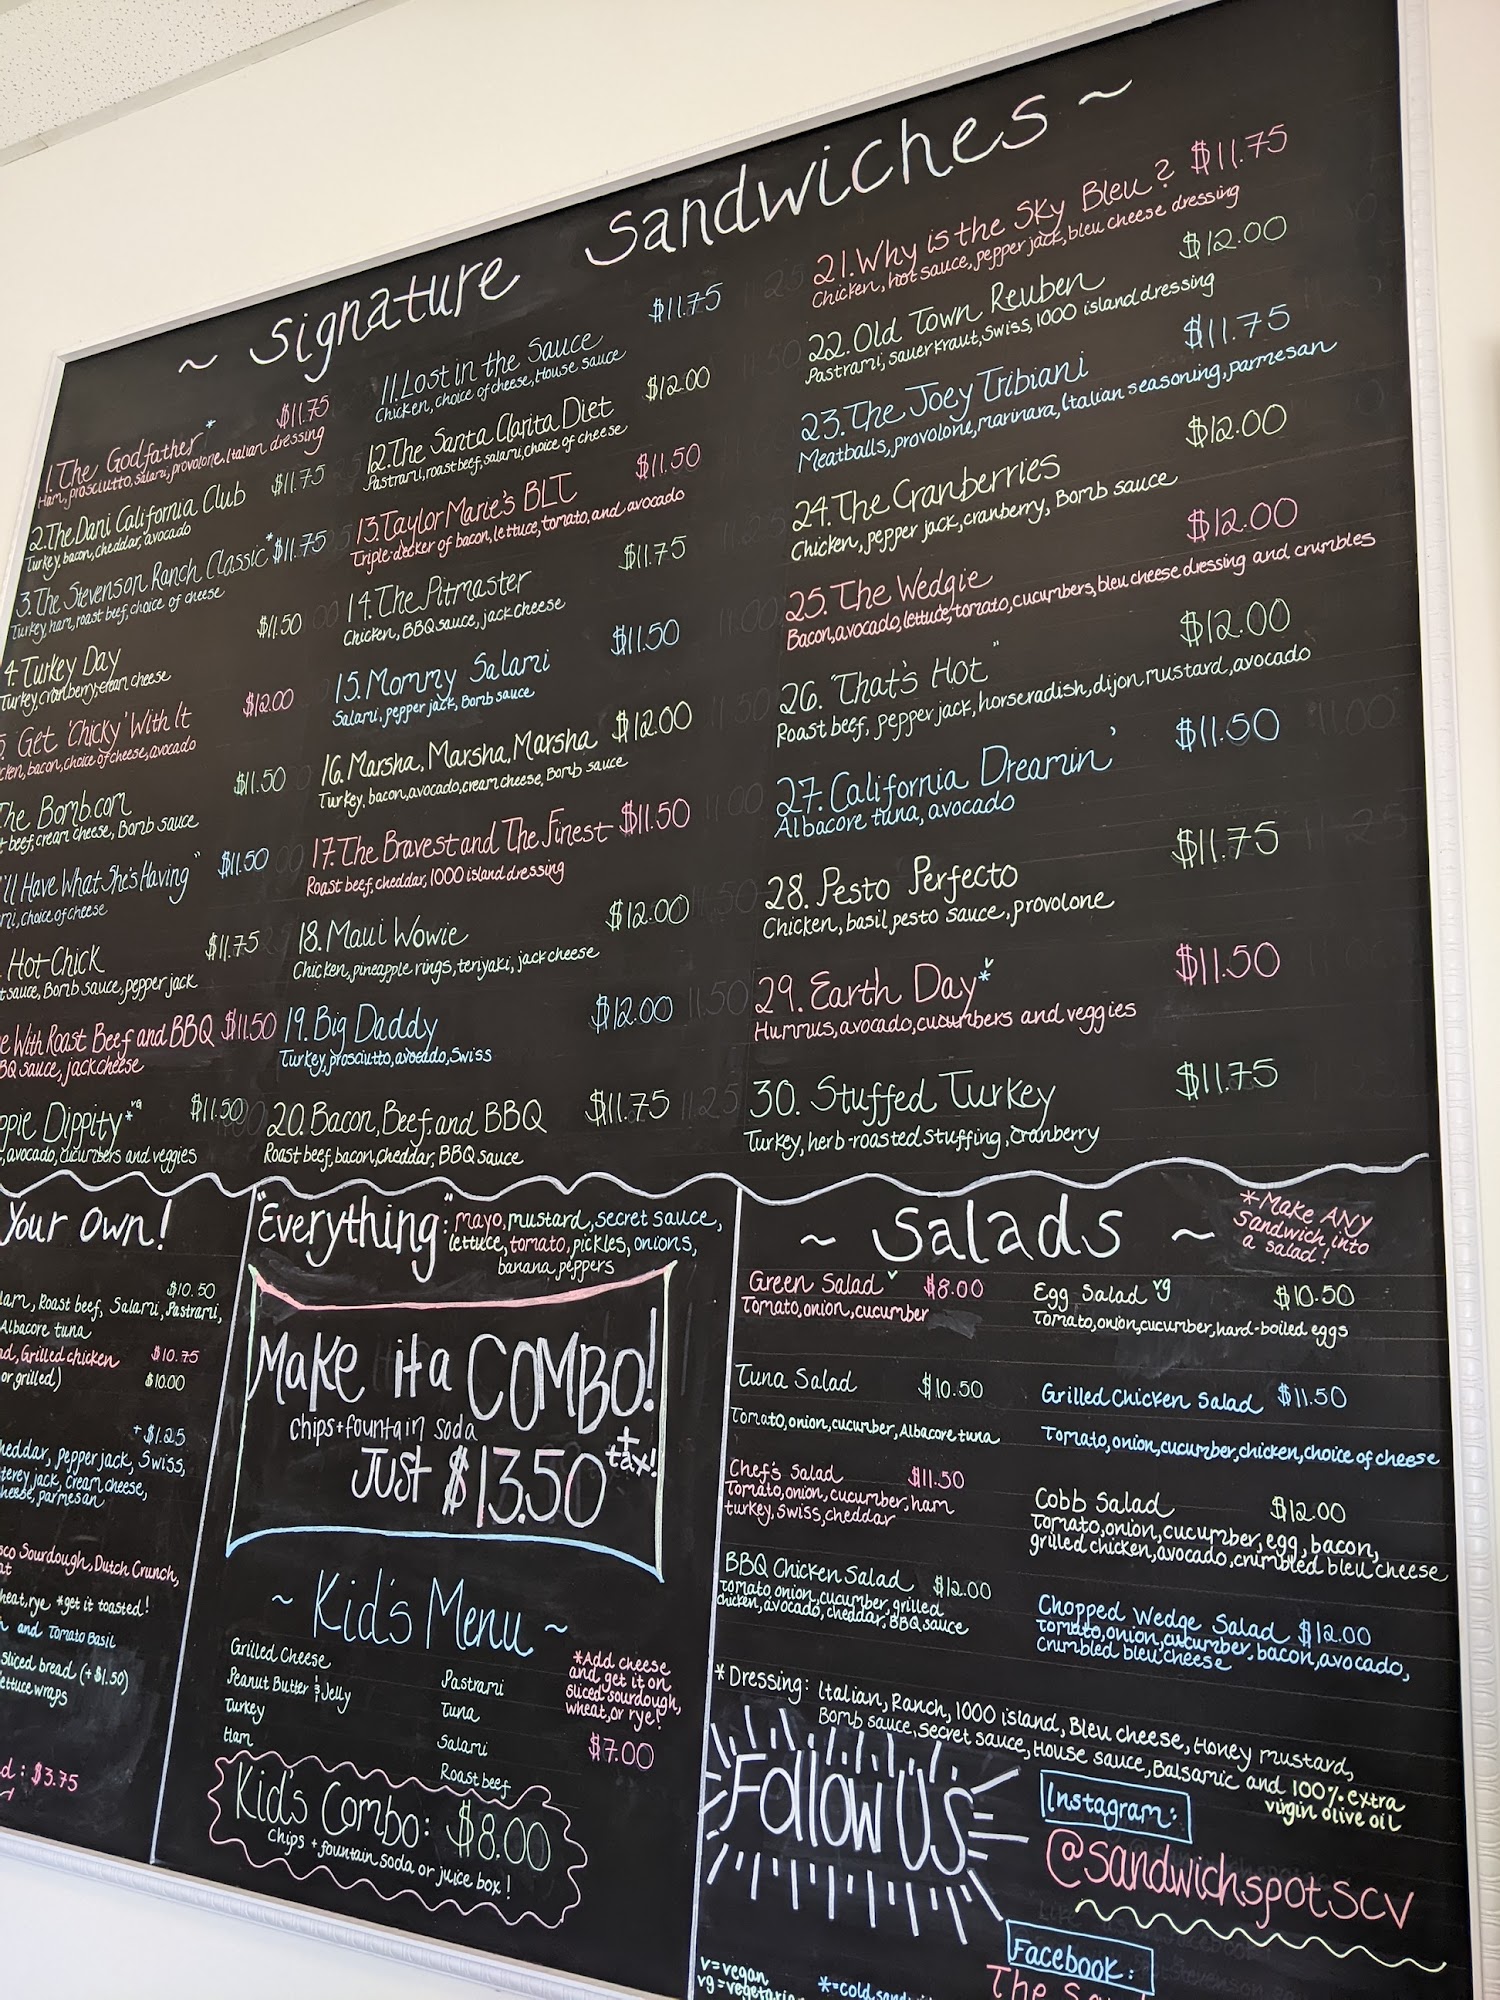 ~ Signature Sandwiches ~
1. The Godfather* $11.75
Ham, prosciutto, salami, provolone, Italian dressing
2. The Dani California Club $11.75
Turkey, bacon, cheddar, avocado
3. The Stevenson Ranch Classic* $11.75
Turkey, ham, roast beef, choice of cheese
4. Turkey Day $11.50
Turkey, cranberry, cream cheese
Get 'Chicky' With It $12.00
bacon, choice of cheese, avocado
The Bomb.com $11.50
beef, cream cheese, Bomb sauce
Have What She's Having" $11.50
choice of cheese
Hot Chick $11.75
sauce, Bomb sauce, pepper jack
With Roast Beef and BBQ $11.50
BBQ sauce, jack cheese
Dippity*vg $11.50
avocado, cucumbers and veggies
11. Lost in the Sauce $11.75
Chicken, choice of cheese, House sauce
12. The Santa Clarita Diet $12.00
Pastrami, roast beef, salami, choice of cheese
13. Taylor Marie's BLT $11.50
Triple-decker of bacon, lettuce, tomato, and avocado
14. The Pitmaster $11.75
Chicken, BBQ sauce, jack cheese
15. Mommy Salami $11.50
Salami, pepper jack, Bomb sauce
16. Marsha, Marsha, Marsha $12.00
Turkey, bacon, avocado, cream cheese, Bomb sauce
17. The Bravest and The Finest $11.50
Roast beef, cheddar, 1000 island dressing
18. Maui Wowie $12.00
Chicken, pineapple rings, teriyaki, jack cheese
19. Big Daddy $12.00
Turkey, prosciutto, avocado, Swiss
20. Bacon, Beef, and BBQ $11.75
Roast beef, bacon, cheddar, BBQ sauce
21. Why is the Sky Bleu? $11.75
Chicken, hot sauce, pepper jack, bleu cheese dressing
22. Old Town Reuben $12.00
Pastrami, sauerkraut, Swiss, 1000 island dressing
23. The Joey Tribiani $11.75
Meatballs, provolone, marinara, Italian seasoning, parmesan
24. The Cranberries $12.00
Chicken, pepper jack, cranberry, Bomb sauce
25. The Wedgie $12.00
Bacon, avocado, lettuce, tomato, cucumbers, bleu cheese dressing and crumbles
26. "That's Hot" $12.00
Roast beef, pepper jack, horseradish, dijon mustard, avocado
27. California Dreamin' $11.50
Albacore tuna, avocado
28. Pesto Perfecto $11.75
Chicken, basil pesto sauce, provolone
29. Earth Day*v $11.50
Hummus, avocado, cucumbers and veggies
30. Stuffed Turkey $11.75
Turkey, herb-roasted stuffing, cranberry
Your Own!
$10.50
Roast beef, Salami, Pastrami,
Albacore tuna
Grilled chicken $10.75
or grilled) $10.00
+$1.25
pepper jack, Swiss,
jack, cream cheese,
parmesan
Sourdough, Dutch Crunch,
rye *get it toasted!
and Tomato Basil
sliced bread (+$1.50)
lettuce wraps
: $3.75
"Everything": mayo, mustard, secret sauce,
lettuce, tomato, pickles, onions,
banana peppers
Make it a COMBO!
chips + fountain soda
Just $13.50 + tax!
~ Kid's Menu ~
Grilled Cheese
Peanut Butter & Jelly
Turkey
Ham
Pastrami
Tuna
Salami
Roast beef
*Add cheese
and get it on
sliced sourdough,
wheat, or rye!
$7.00
Kid's Combo: $8.00
chips + fountain soda or juice box!
~ Salads ~
*Make ANY
sandwich into
a salad!
Green Salad v $8.00
Tomato, onion, cucumber
Egg Salad vg $10.50
Tomato, onion, cucumber, hard-boiled eggs
Tuna Salad $10.50
Tomato, onion, cucumber, Albacore tuna
Grilled Chicken Salad $11.50
Tomato, onion, cucumber, chicken, choice of cheese
Chef's Salad $11.50
Tomato, onion, cucumber, ham
turkey, swiss, cheddar
Cobb Salad $12.00
Tomato, onion, cucumber, egg, bacon,
grilled chicken, avocado, crumbled bleu cheese
BBQ Chicken Salad $12.00
Tomato, onion, cucumber, grilled
chicken, avocado, cheddar, BBQ sauce
Chopped Wedge Salad $12.00
Tomato, onion, cucumber, bacon, avocado,
crumbled bleu cheese
*Dressing: Italian, Ranch, 1000 island, Bleu cheese, Honey mustard,
Bomb sauce, Secret sauce, House sauce, Balsamic and 100% extra
virgin olive oil
Follow US
Instagram:
@sandwichspotscv
Facebook:
The
v=vegan
*=cold